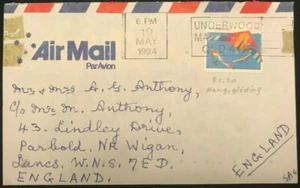 6 PM
10
MAY
1994
UNDERWOOD
QLD 4
Air Mail
Par Avion
$1.20
hang gliding
Mr & Mrs A. G. Anthony,
C/o Mr M. Anthony,
43. Lindley Drive,
Parbold, NR Wigan,
Lancs. W.N.8 7 E.D.
ENGLAND.
ENGLAND